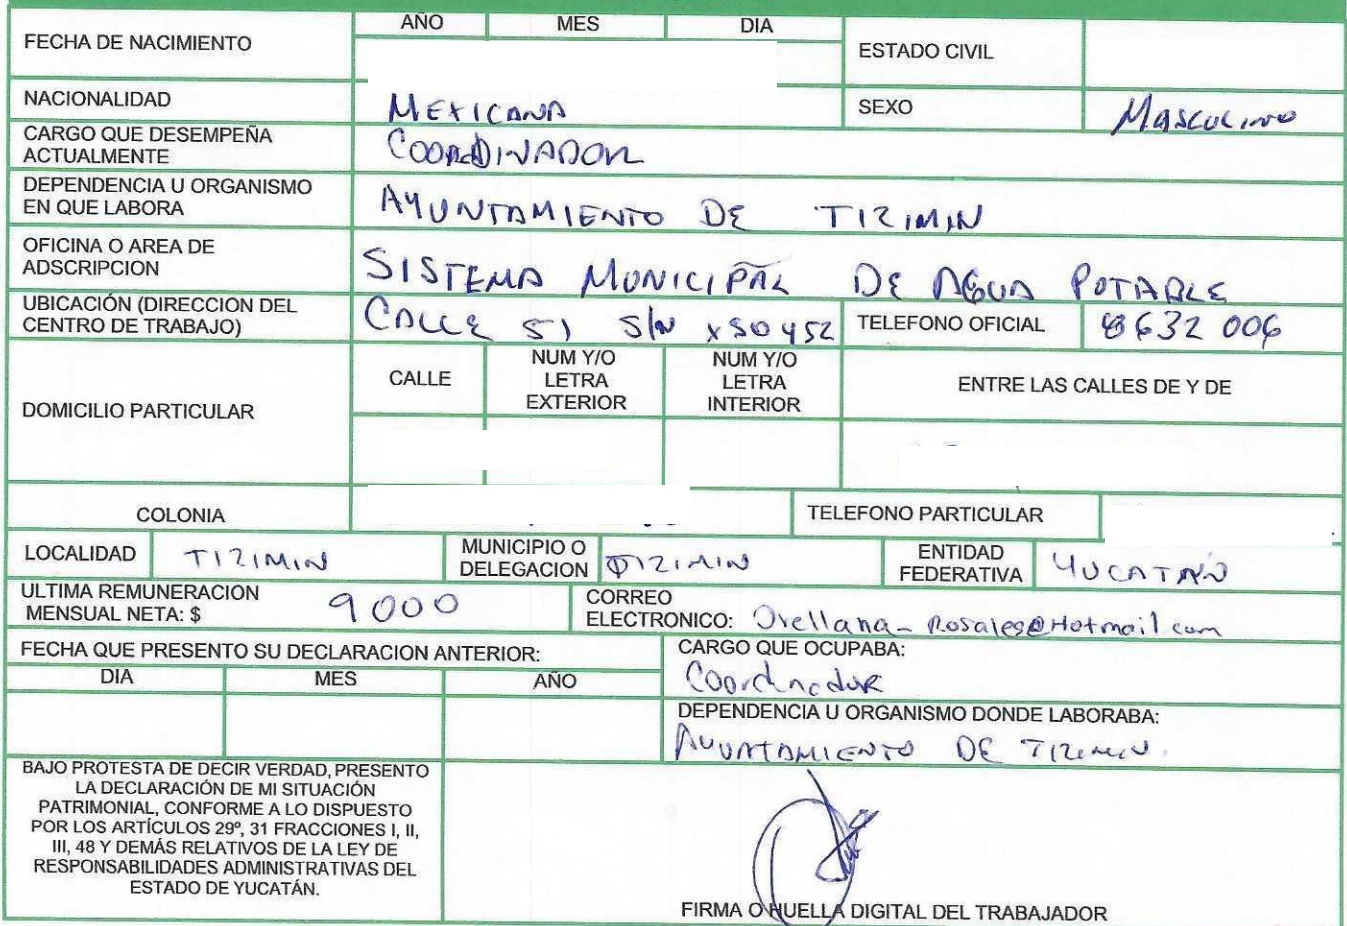 AÑO MES DIA
FECHA DE NACIMIENTO ESTADO CIVIL
NACIONALIDAD MEXICANA SEXO MASCULINO
CARGO QUE DESEMPEÑA
ACTUALMENTE
COORDINADOR
DEPENDENCIA U ORGANISMO
EN QUE LABORA
AYUNTAMIENTO DE TIZIMIN
OFICINA O AREA DE
ADSCRIPCION
SISTEMA MUNICIPAL DE AGUA POTABLE
UBICACIÓN (DIRECCION DEL
CENTRO DE TRABAJO)
CALLE 51 S/N x 50 y 52 TELEFONO OFICIAL 8632 006
DOMICILIO PARTICULAR
CALLE
NUM Y/O
LETRA
EXTERIOR
NUM Y/O
LETRA
INTERIOR
ENTRE LAS CALLES DE Y DE
COLONIA TELEFONO PARTICULAR
LOCALIDAD TIZIMIN
MUNICIPIO O
DELEGACION
TIZIMIN
ENTIDAD
FEDERATIVA
YUCATAN
ULTIMA REMUNERACION
MENSUAL NETA: $ 9000
CORREO
ELECTRONICO: Orellana_Rosales@Hotmail.com
FECHA QUE PRESENTO SU DECLARACION ANTERIOR:
DIA MES AÑO
CARGO QUE OCUPABA:
Coordinador
DEPENDENCIA U ORGANISMO DONDE LABORABA:
AYUNTAMIENTO DE TIZIMIN
BAJO PROTESTA DE DECIR VERDAD, PRESENTO
LA DECLARACIÓN DE MI SITUACIÓN
PATRIMONIAL, CONFORME A LO DISPUESTO
POR LOS ARTÍCULOS 29º, 31 FRACCIONES I, II,
III, 48 Y DEMÁS RELATIVOS DE LA LEY DE
RESPONSABILIDADES ADMINISTRATIVAS DEL
ESTADO DE YUCATÁN.
FIRMA O HUELLA DIGITAL DEL TRABAJADOR